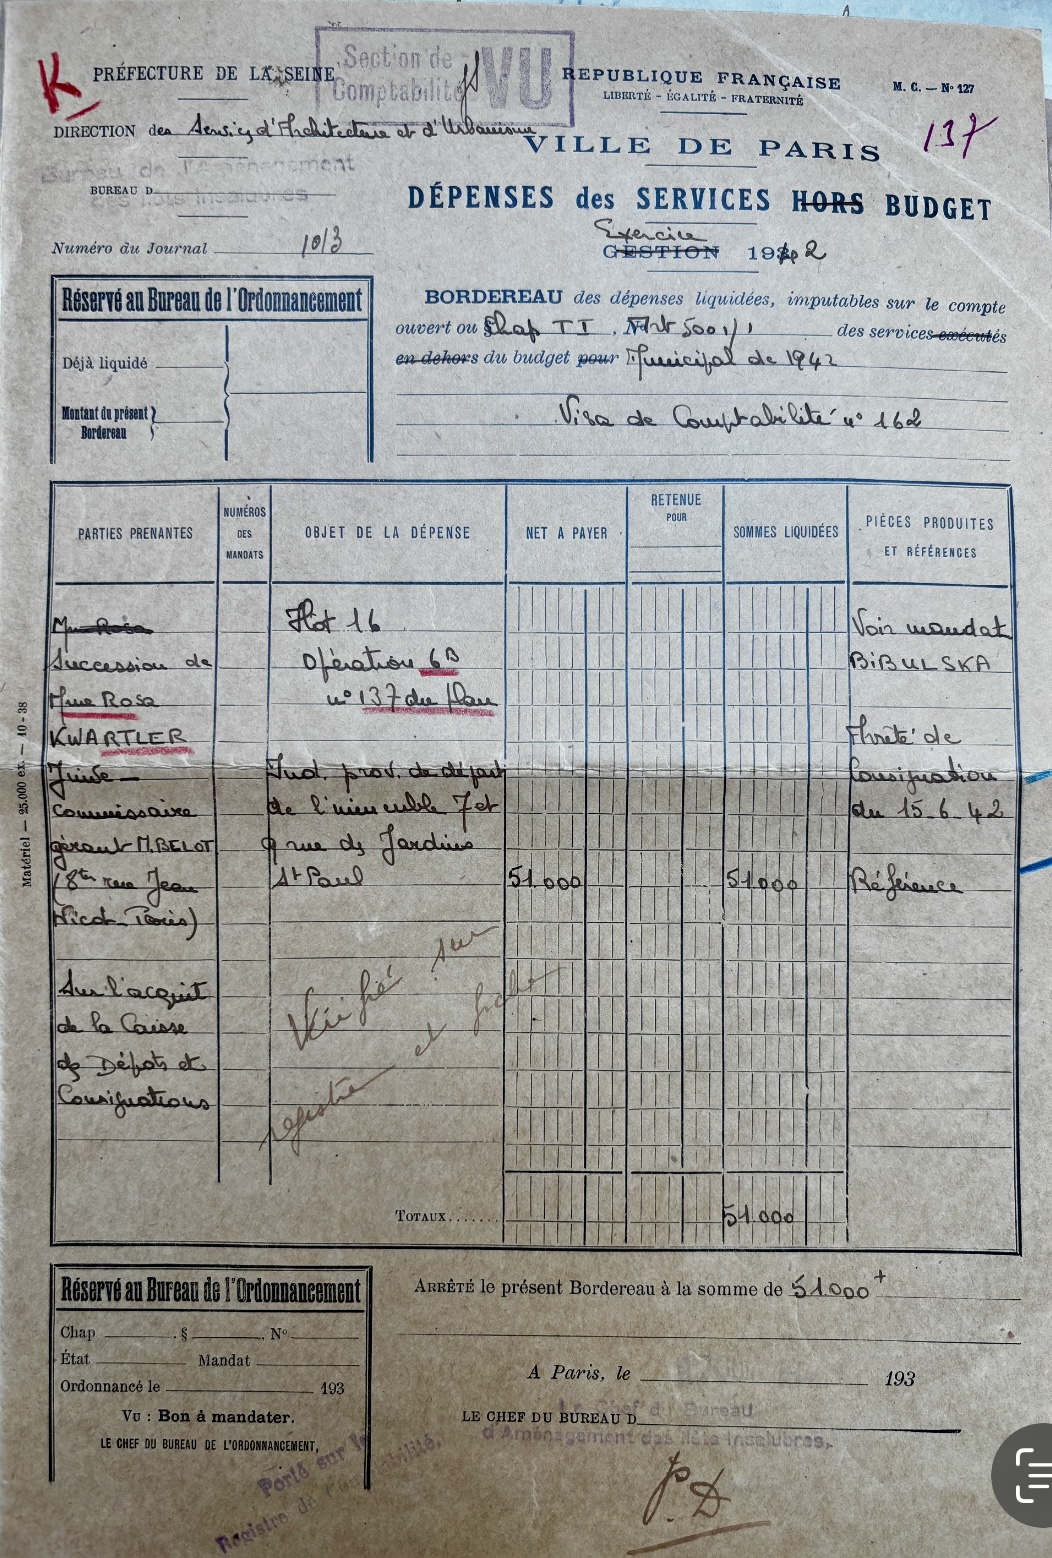 K
PRÉFECTURE DE LA SEINE
Section de
Comptabilité
VU
REPUBLIQUE FRANÇAISE
LIBERTÉ - ÉGALITÉ - FRATERNITÉ
M. C. — N° 127
137
DIRECTION des Services d'Architecture et d'Urbanisme
VILLE DE PARIS
Bureau de l'Aménagement
des Ilots Insalubres
BUREAU D
DÉPENSES des SERVICES HORS BUDGET
Exercice
GESTION 1942
Numéro du Journal 1013
Réservé au Bureau de l'Ordonnancement
Déjà liquidé
Montant du présent
Bordereau
BORDEREAU des dépenses liquidées, imputables sur le compte
ouvert ou Chap II. Art 5001/1 des services exécutés
en dehors du budget pour Municipal de 1942
Visa de Comptabilité n° 162
PARTIES PRENANTES
NUMÉROS
DES
MANDATS
OBJET DE LA DÉPENSE
NET A PAYER
RETENUE
POUR
SOMMES LIQUIDÉES
PIÈCES PRODUITES
ET RÉFÉRENCES
Mme Rosa Ilot 16 Voir mandat
Succession de Opération 6B BIBULSKA
Mme Rosa n° 137 du plan
KWARTLER Arrêté de
Juive — Ind. prov. de départ Consignation
commissaire de l'immeuble 7 et du 15-6-42
gérant M. BELOT 9 rue des Jardins
(8ter rue Jean St Paul 51.000 51.000 Référence
Nicot Paris)
Sur l'acquit
de la Caisse
des Dépôts et
Consignations
Vérifié sur
registre et fiche
TOTAUX....... 51.000
Matériel — 25.000 ex. — 10-38
Réservé au Bureau de l'Ordonnancement
Chap . § . N°
État Mandat
Ordonnancé le 193
Vu : Bon à mandater.
LE CHEF DU BUREAU DE L'ORDONNANCEMENT,
Porté sur le
Registre de Comptabilité.
ARRÊTÉ le présent Bordereau à la somme de 51.000
A Paris, le 193
LE CHEF DU BUREAU D
Le Chef du Bureau
d'Aménagement des Ilôts Insalubres,
P. D